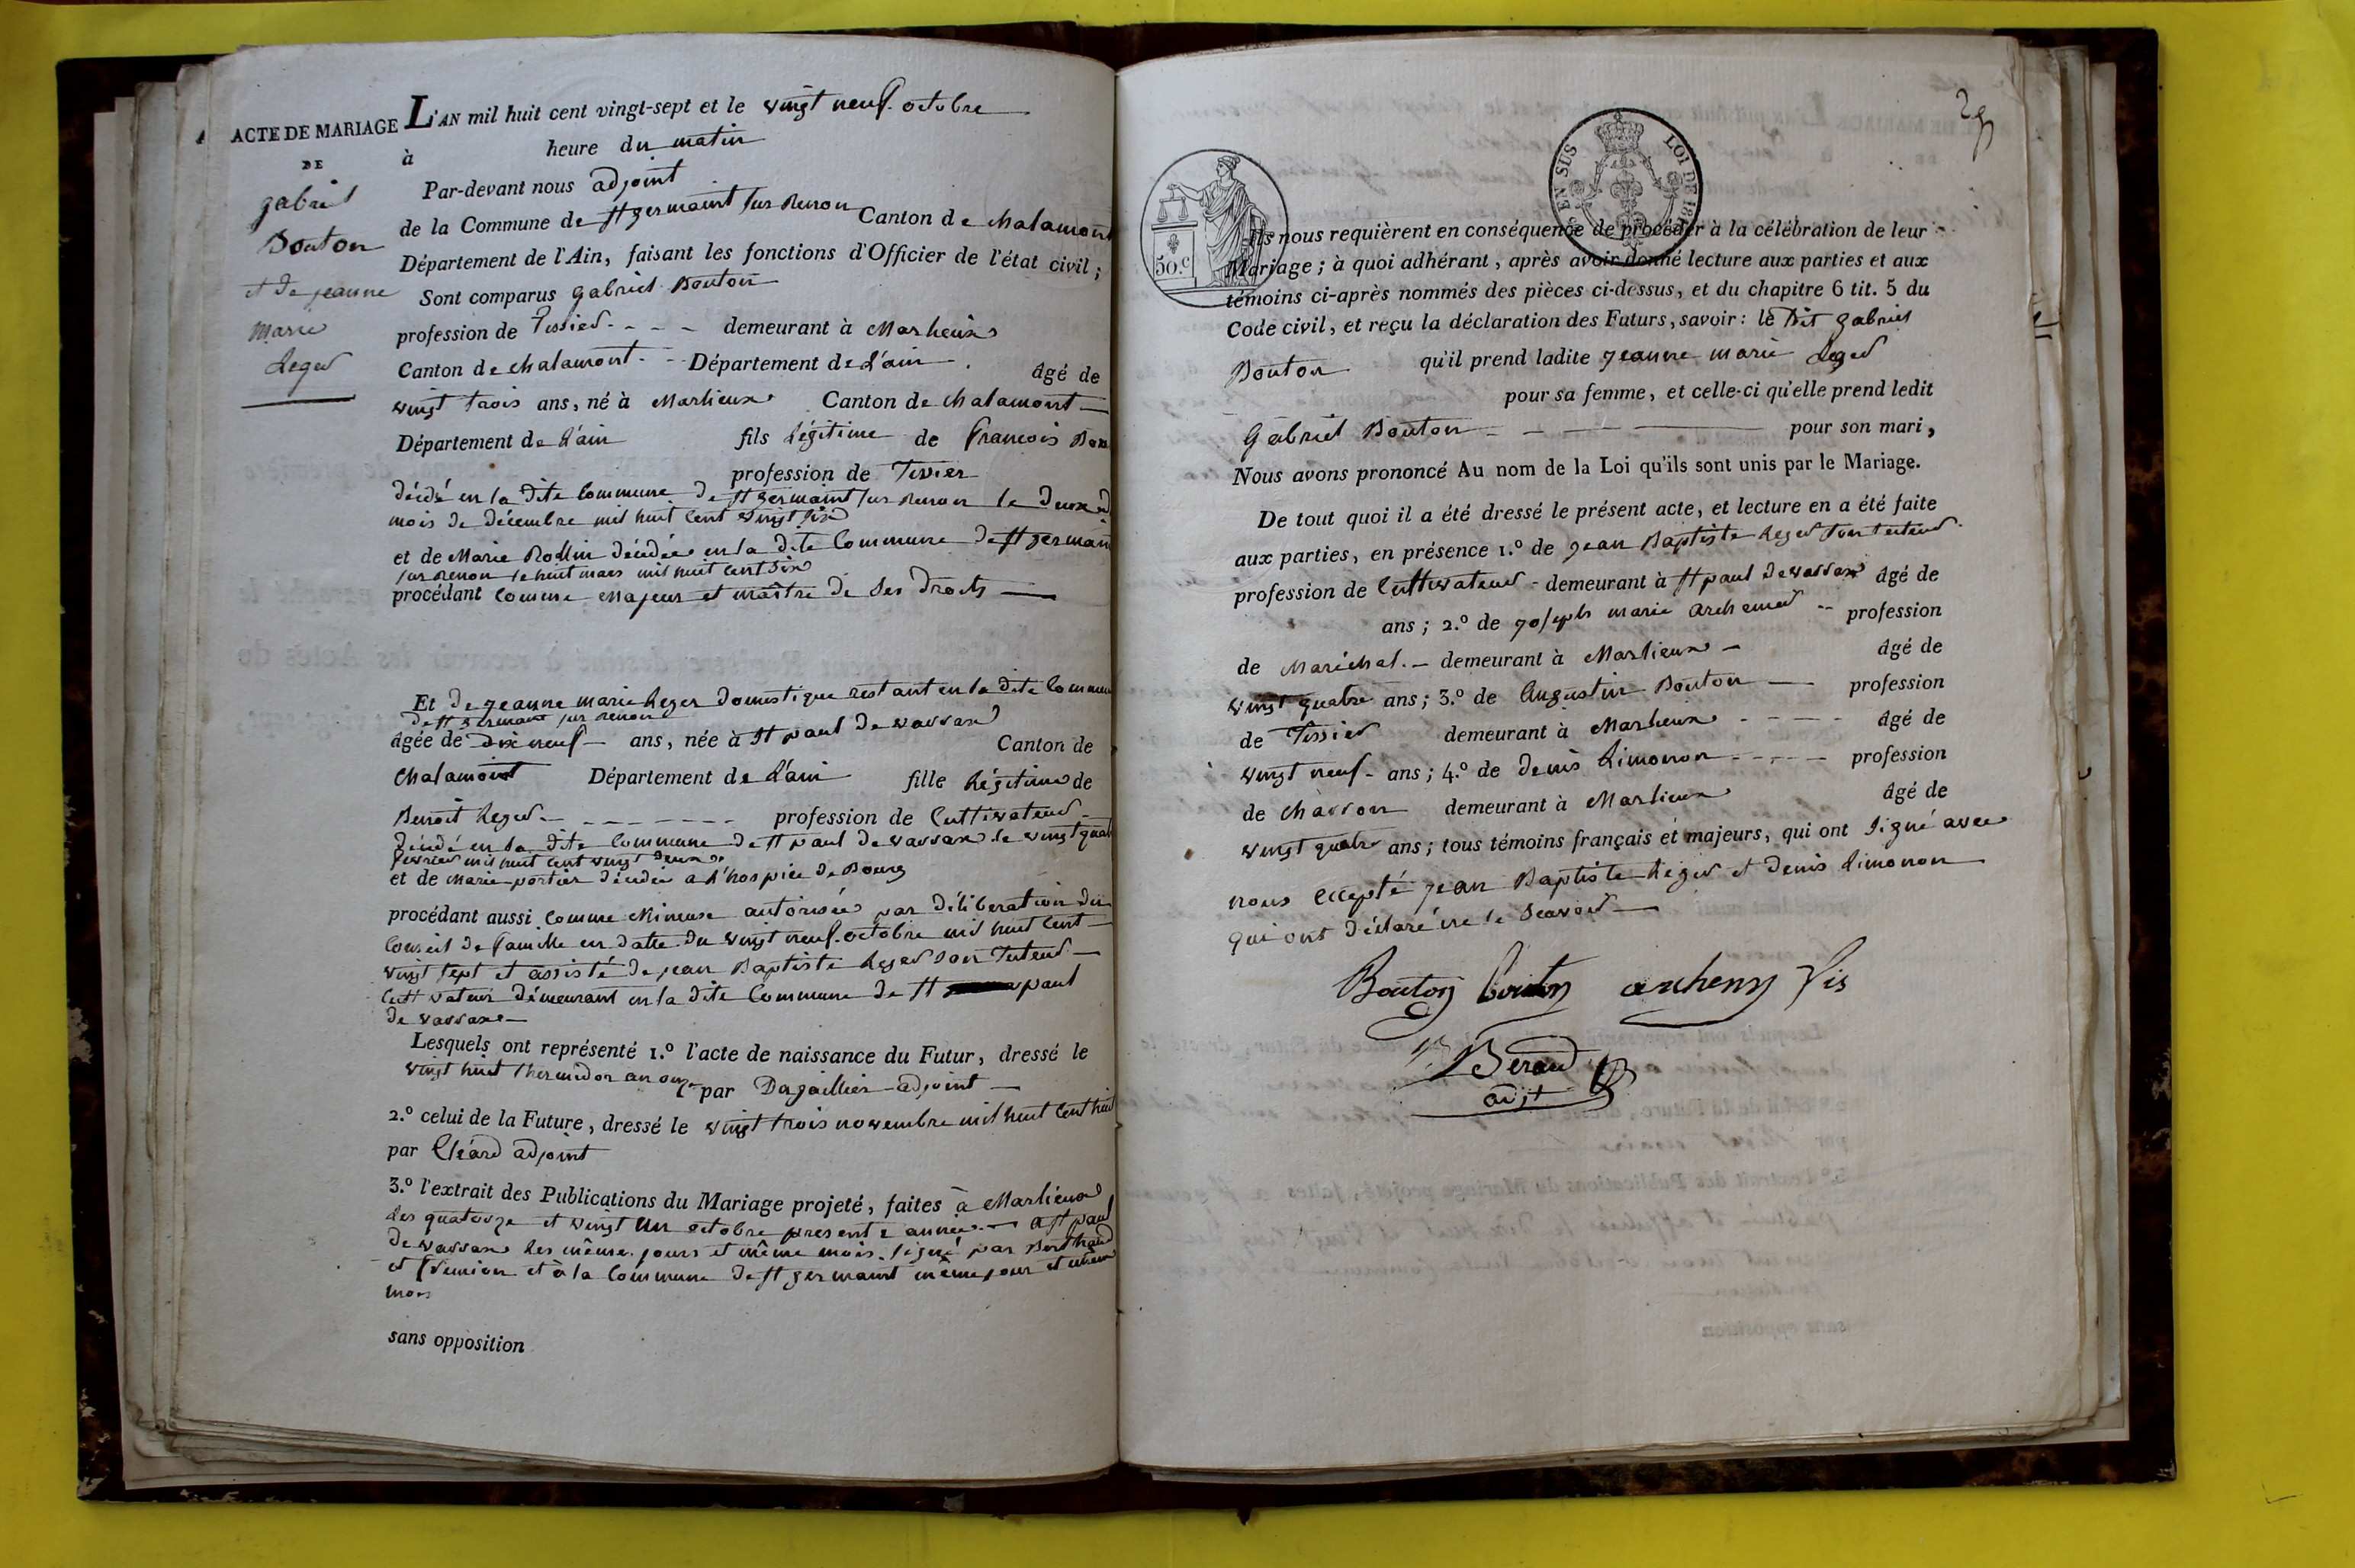 ACTE DE MARIAGE
DE
gabriel
Bouton
et de jeanne
marie
Leger
L'AN mil huit cent vingt-sept et le vingt neuf octobre
à heure du matin
Par-devant nous adjoint
de la Commune de St germaint sur Renon Canton de chalamont
Département de l'Ain, faisant les fonctions d'Officier de l'état civil;
Sont comparus gabriel Bouton
profession de Tissier demeurant à Marlieux
Canton de chalamont Département de L'ain âgé de
vingt trois ans, né à Marlieux Canton de chalamont
Département de L'ain fils Légitime de francois
profession de Tissier
décédé en la dite Commune de St germaint sur Renon le
mois de décembre mil huit cent vingt
et de Marie décédée en la dite Commune de St germain
sur Renon le huit mars mil huit cent six
procédant Comme Majeur et maître de Ses droits
Et de jeanne marie Leger domestique restant en la dite Commune
de St germaint sur Renon
âgée de dix neuf ans, née à St paul de varrax
Canton de
chalamont Département de L'ain fille Légitime de
Benoît Leger profession de Cultivateur
décédé en la dite Commune de St paul de varrax le vingt quat
fevrier mil huit cent vingt deux
et de Marie portier décédée a L'hospice de Bourg
procédant aussi Comme Mineure autorisée par déliberation du
Conseil de famille en datte du vingt neuf octobre mil huit cent
vingt sept et assisté de jean Baptiste Leger son Tuteur
Cultivateur demeurant en la dite Commune de St paul
de varrax
Lesquels ont représenté 1.° l'acte de naissance du Futur, dressé le
vingt huit Thermidor an onze par Dagaillier adjoint
2.° celui de la Future, dressé le vingt trois novembre mil huit cent huit
par adjoint
3.° l'extrait des Publications du Mariage projeté, faites à Marlieux
Les quatorze et vingt un octobre presente année a St paul
de varrax Les même jours et même mois signé par Berthaud
et et à la Commune de St germaint même jour et même
mois
sans opposition
29
EN SUS
LOI DE 181
50.c
Ils nous requièrent en conséquence de procéder à la célébration de leur
Mariage; à quoi adhérant, après avoir donné lecture aux parties et aux
témoins ci-après nommés des pièces ci-dessus, et du chapitre 6 tit. 5 du
Code civil, et reçu la déclaration des Futurs, savoir: le Dit gabriel
Bouton qu'il prend ladite jeanne marie Leger
pour sa femme, et celle-ci qu'elle prend ledit
Gabriel Bouton pour son mari,
Nous avons prononcé Au nom de la Loi qu'ils sont unis par le Mariage.
De tout quoi il a été dressé le présent acte, et lecture en a été faite
aux parties, en présence 1.° de jean Baptiste Leger son tuteur
profession de Cultivateur demeurant à St paul de varrax âgé de
ans; 2.° de joseph marie profession
de Maréchal demeurant à Marlieux âgé de
vingt quatre ans; 3.° de Augustin Bouton profession
de Tissier demeurant à Marlieux âgé de
vingt neuf ans; 4.° de denis Limonon profession
de Charron demeurant à Marlieux âgé de
vingt quatre ans; tous témoins français et majeurs, qui ont signé avec
nous excepté jean Baptiste Leger et denis Limonon
qui ont déclaré ne le Scavoir
Bouton bouton archeny fis
Beraud
adjt